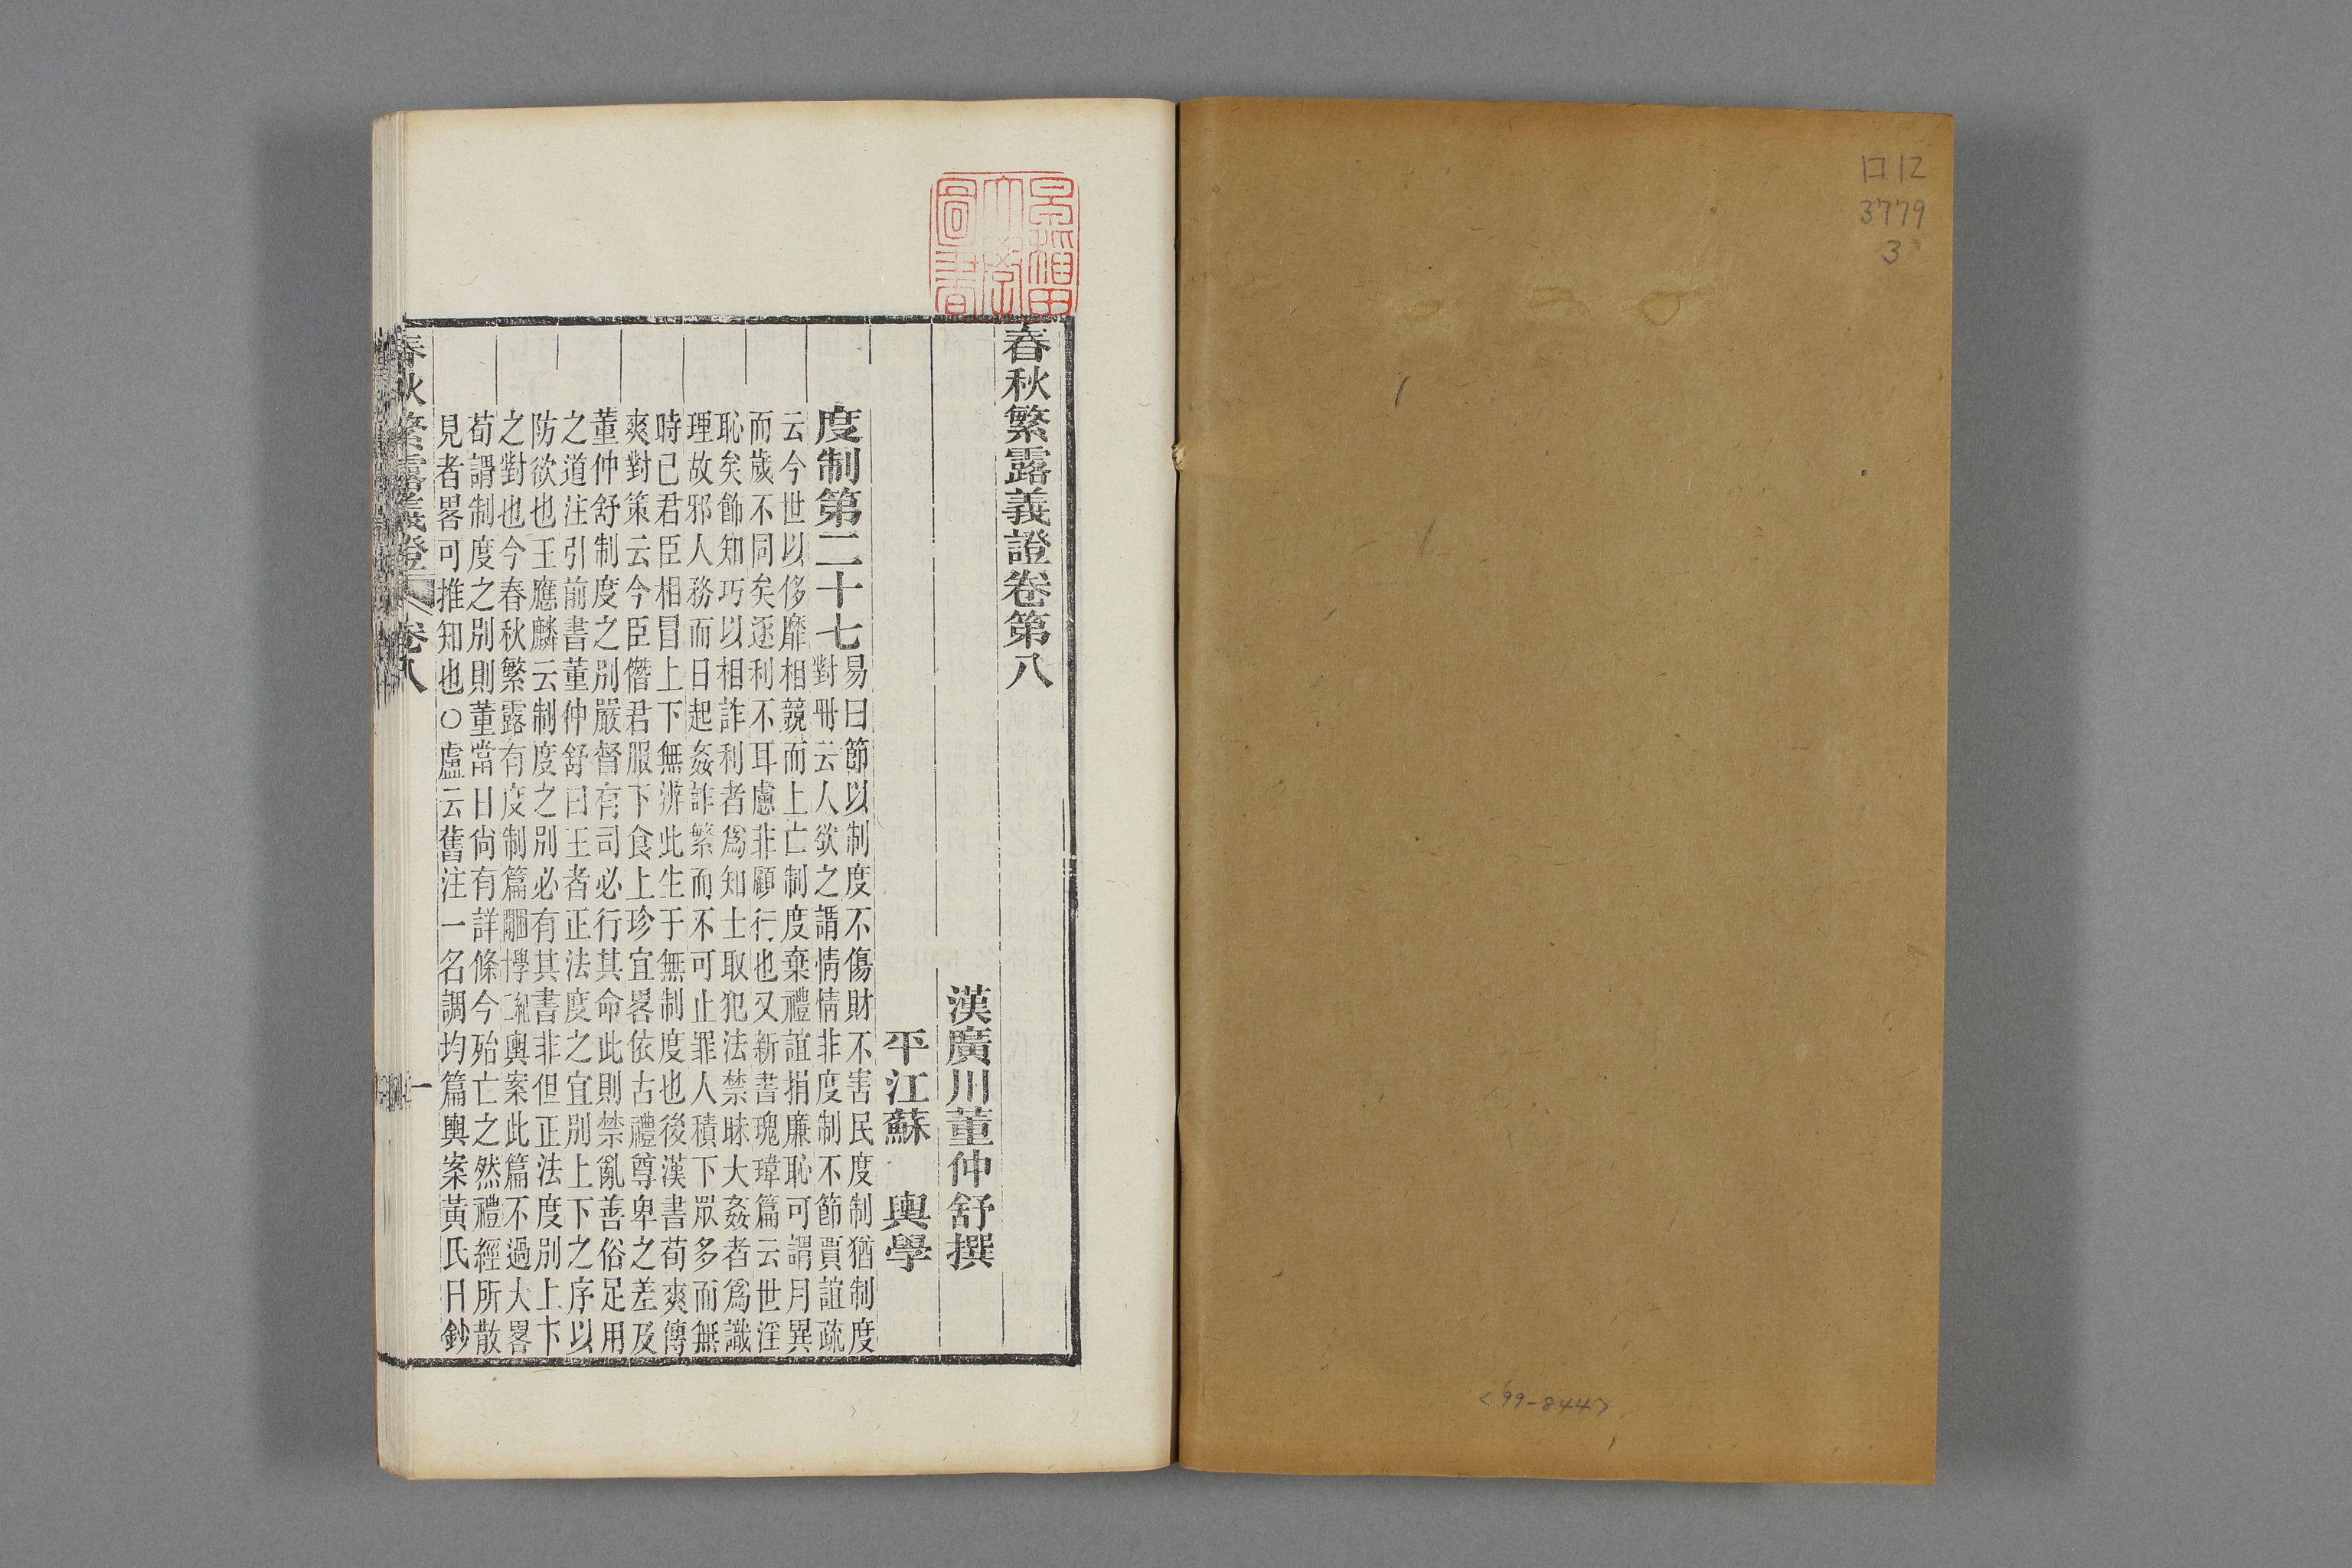 ロ12
3779
3
<99-8444>
早稲田大學圖書
春秋繁露義證卷第八
漢廣川董仲舒撰
平江蘇輿學
度制第二十七
易曰節以制度不傷財不害民度制猶制度
對冊云人欲之謂情情非度制不節賈誼疏
云今世以侈靡相競而上亡制度棄禮誼捐廉恥可謂月異
而歲不同矣逐利不耳慮非顧行也又新書瑰瑋篇云世淫
恥矣飾知巧以相詐利者爲知士取犯法禁昧大姦者爲識
理故邪人務而日起姦詐繁而不可止罪人積下眾多而無
時已君臣相冒上下無辨此生于無制度也後漢書荀爽傳
爽對策云今臣僭君服下食上珍宜畧依古禮尊卑之差及
董仲舒制度之別嚴督有司必行其命此則禁亂善俗足用
之道注引前書董仲舒曰王者正法度之宜別上下之序以
防欲也王應麟云制度之別必有其書非但正法度別上下
之對也今春秋繁露有度制篇輿案此篇不過大畧
荀謂制度之別則董當日尙有詳條今殆亡之然禮經所散
見者畧可推知也○盧云舊注一名調均篇輿案黃氏日鈔
春秋繁露義證 卷八 一